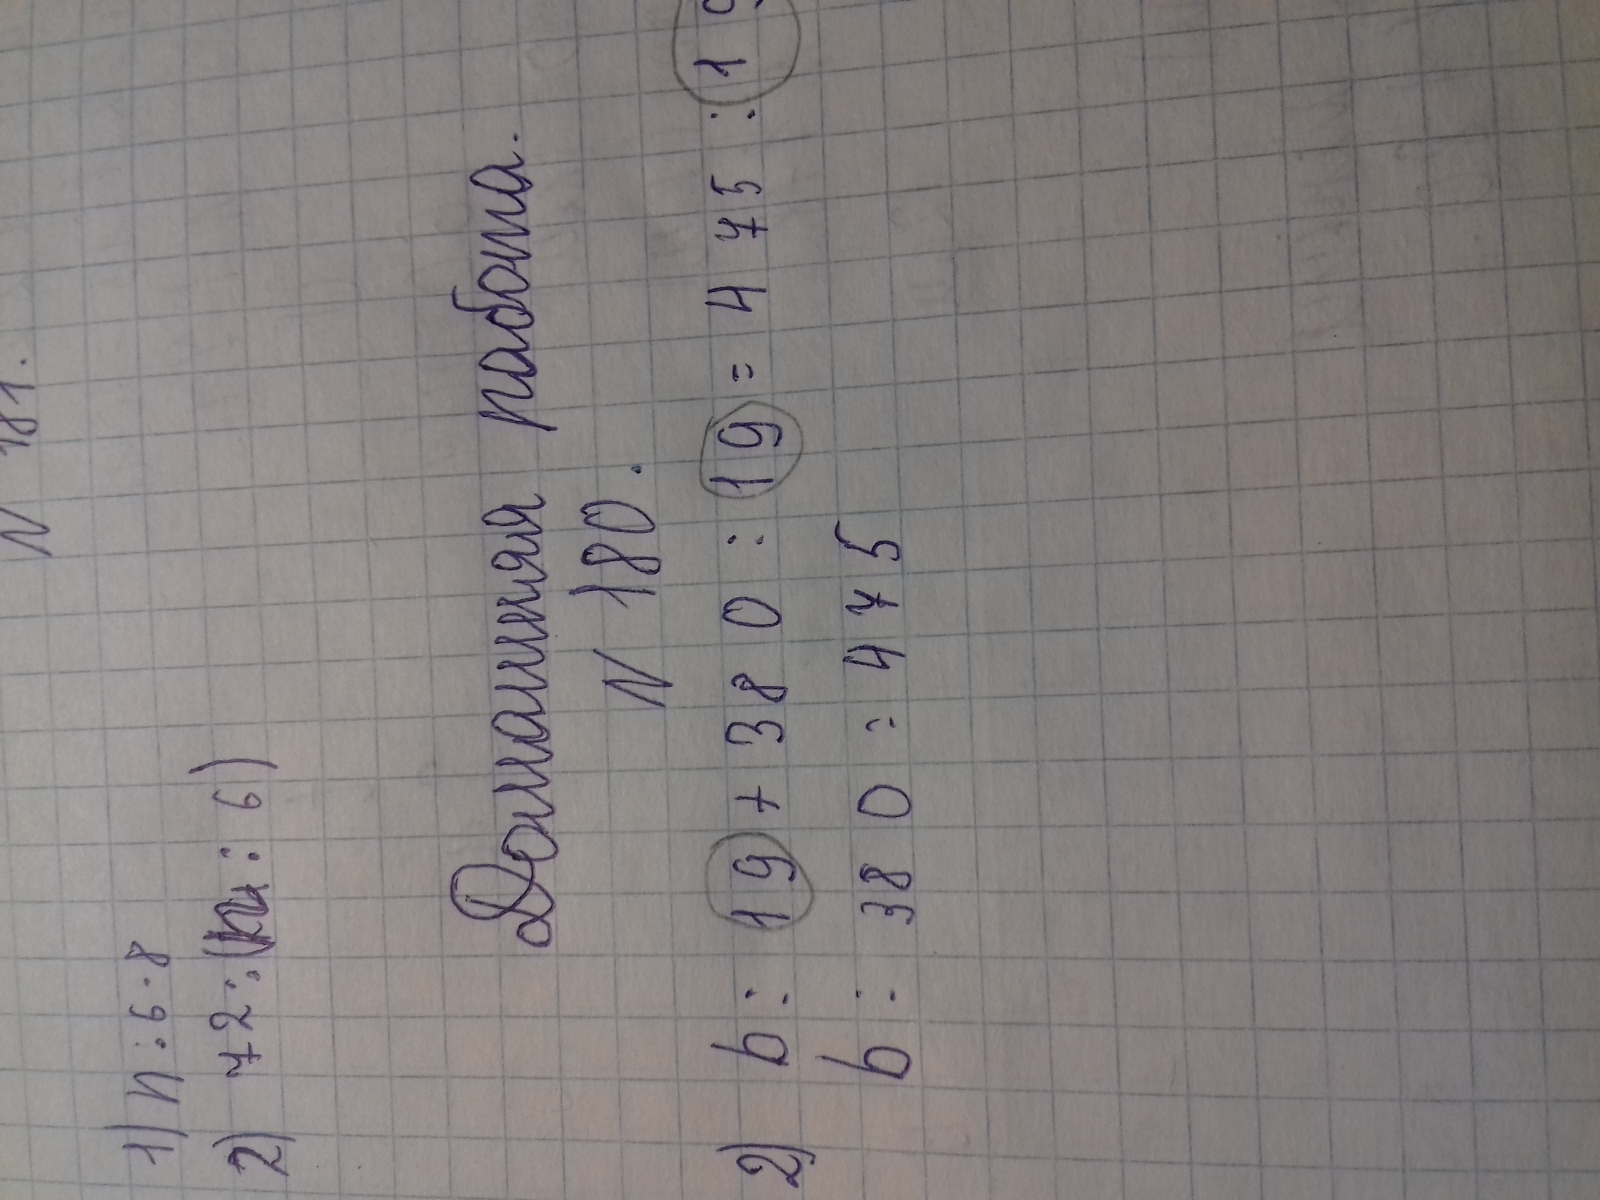 N 181.
1) n : 6 · 8
2) 72 : ( : 6)
Домашняя работа.
N 180.
2) b : 19 + 380 : 19 = 475 : 19
b : 380 = 475